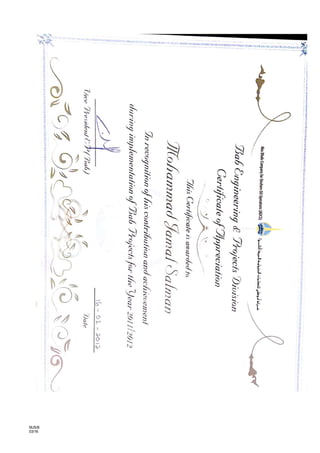 Abu Dhabi Company for Onshore Oil Operations (ADCO)
Bab Engineering & Projects Division
Certificate of Appreciation
This Certificate is awarded to
Mohammad Jamal Salman
In recognition of his contribution and achievement
during implementation of Bab Projects for the Year 2011/2012
16-01-2012
Vice President
Date